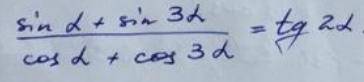 (sin α + sin 3α) / (cos α + cos 3α) = tg 2α